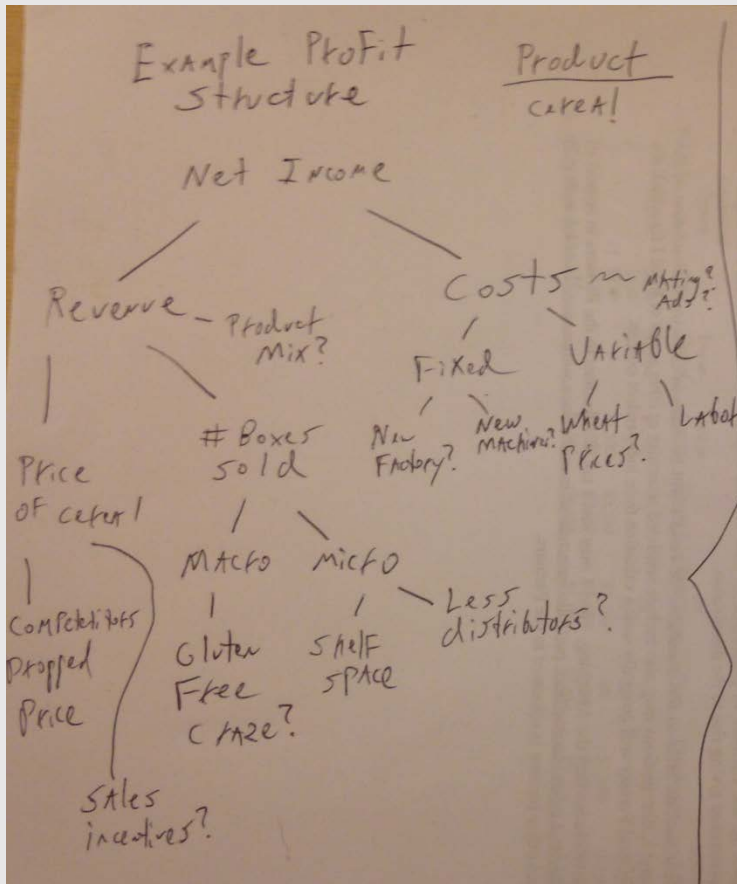 Example Profit
Structure
Product
cereal
Net Income
Revenue
Product
Mix?
Costs
Ads?
Fixed
Variable
New
Factory?
New
Machines?
Wheat
Prices?
Labor
Price
of cereal
# Boxes
sold
Macro
Micro
Competitors
Dropped
Price
Gluten
Free
Craze?
Shelf
Space
Less
distributors?
Sales
incentives?